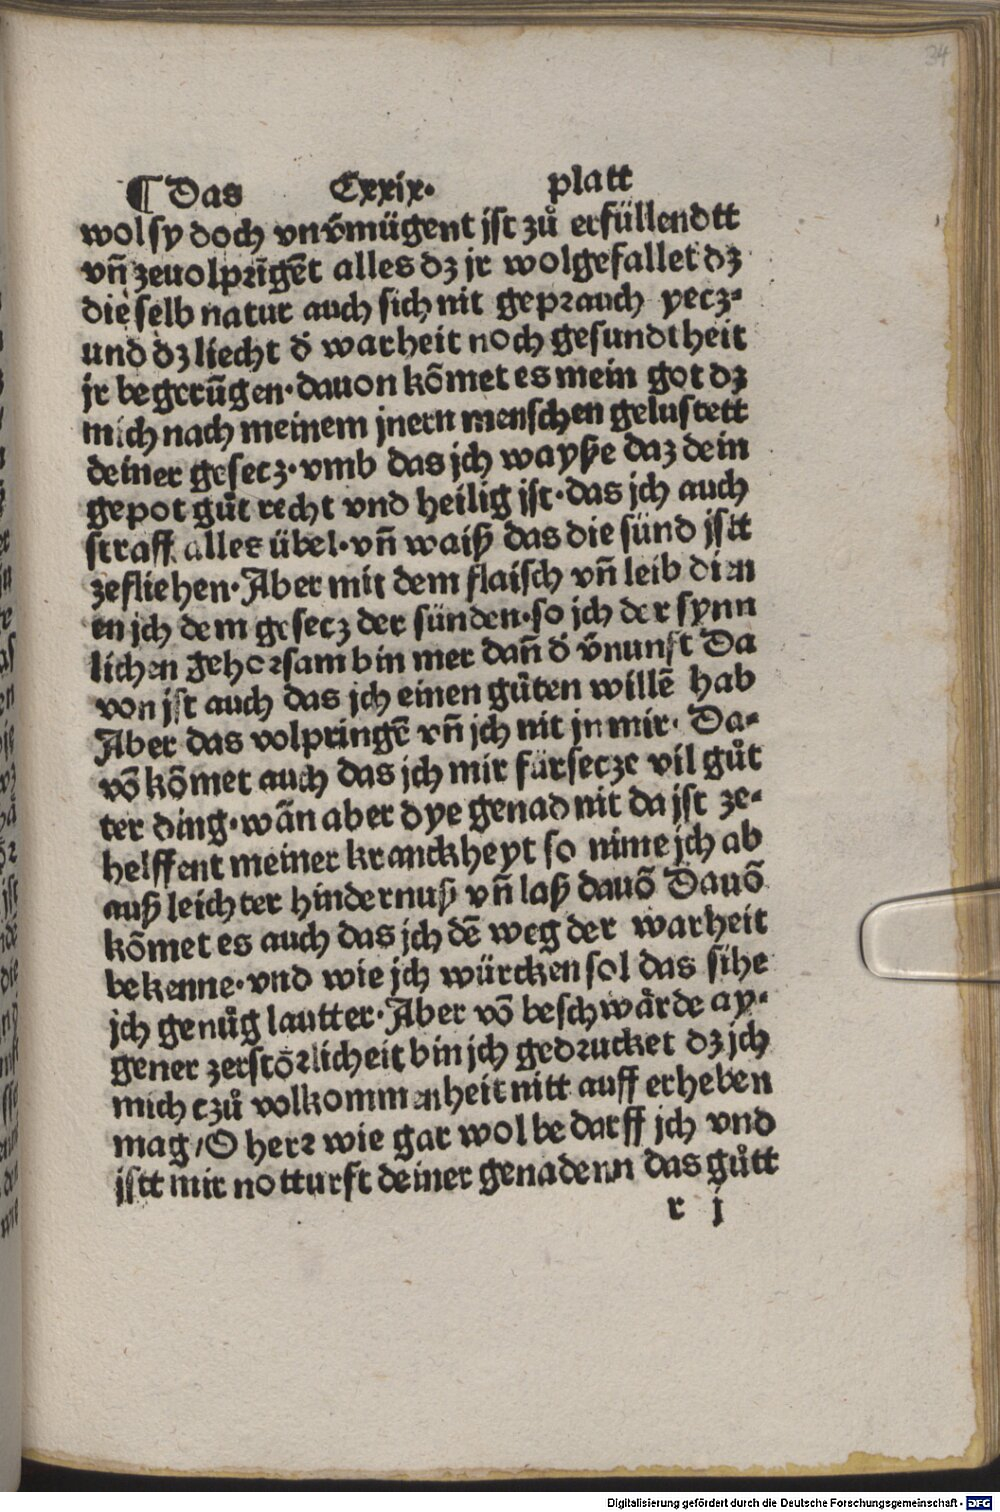 34
¶ Das Cxxix. platt
wol sy doch vnv̄mügent jst zů erfüllendtt
vn̄ zeuolprīgēt alles dz jr wolgefallet dz
die selb natur auch sich nit geprauch yecz⸗
und dz liecht d̄ warheit noch gesundtheit
jr begerūgen · dauon kōmet es mein got dz
mich nach meinem jnern menschen gelustett
deiner gesecz · vmb das jch wayße daz dein
gepot gůt recht vnd heilig jst · das jch auch
straff alles übel · vn̄ waiß das die sünd jstt
zefliehen · Aber mit dem flaisch vn̄ leib dien
en jch dem gesecz der sünden · so jch der synn
lichen gehorsam bin mer dan̄ d̄ v̄nunft Da
von jst auch das jch einen gůten willē hab
Aber das volpringē vn̄ jch nit jn mir · Da⸗
vō kōmet auch das jch mir fürsecze vil gůt
ter ding · wān aber dye genad nit da jst ze⸗
helffent meiner kranckheyt so nime jch ab
auß leichter hindernuß vn̄ laß dauō Dauō
kōmet es auch das jch dē weg der warheit
bekenne · vnd wie jch würcken sol das sihe
jch genůg lautter · Aber vō beschwårde ay⸗
gener zerstōrlicheit bin jch gedrucket dz jch
mich czů volkommenheit nitt auff erheben
mag / O herr wie gar wol bedarff jch vnd
jstt mir notturft deiner genadenn das gůtt
r j
Digitalisierung gefördert durch die Deutsche Forschungsgemeinschaft - DFG